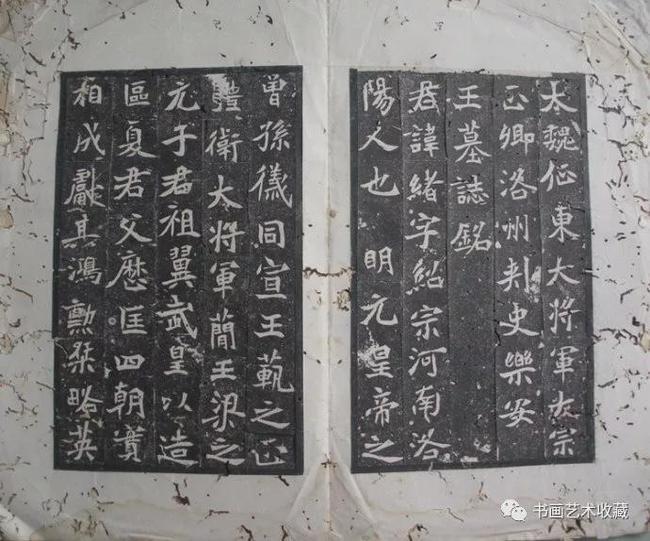 太魏征東大將軍大宗
正卿洛州刺史樂安
王墓誌銘
君諱緒字紹宗河南洛
陽人也 明元皇帝之
曾孫儀同宣王範之正
體衛大將軍簡王梁之
元子君祖翼武皇以造
區夏君父歷匡四朝實
相成獻其鴻勳桀略英
书画艺术收藏